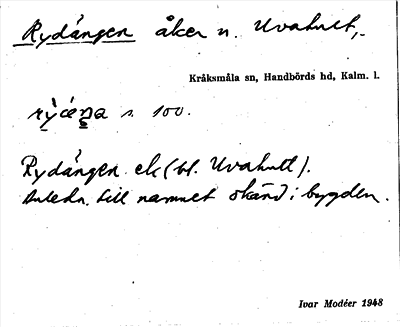 Rydången åker n. Uvahult,.
Kråksmåla sn, Handbörds hd, Kalm. l.
s. 100.
Rydången. ek (bl. Uvahult).
Anledn. till namnet okänd i bygden.
Ivar Modéer 1948